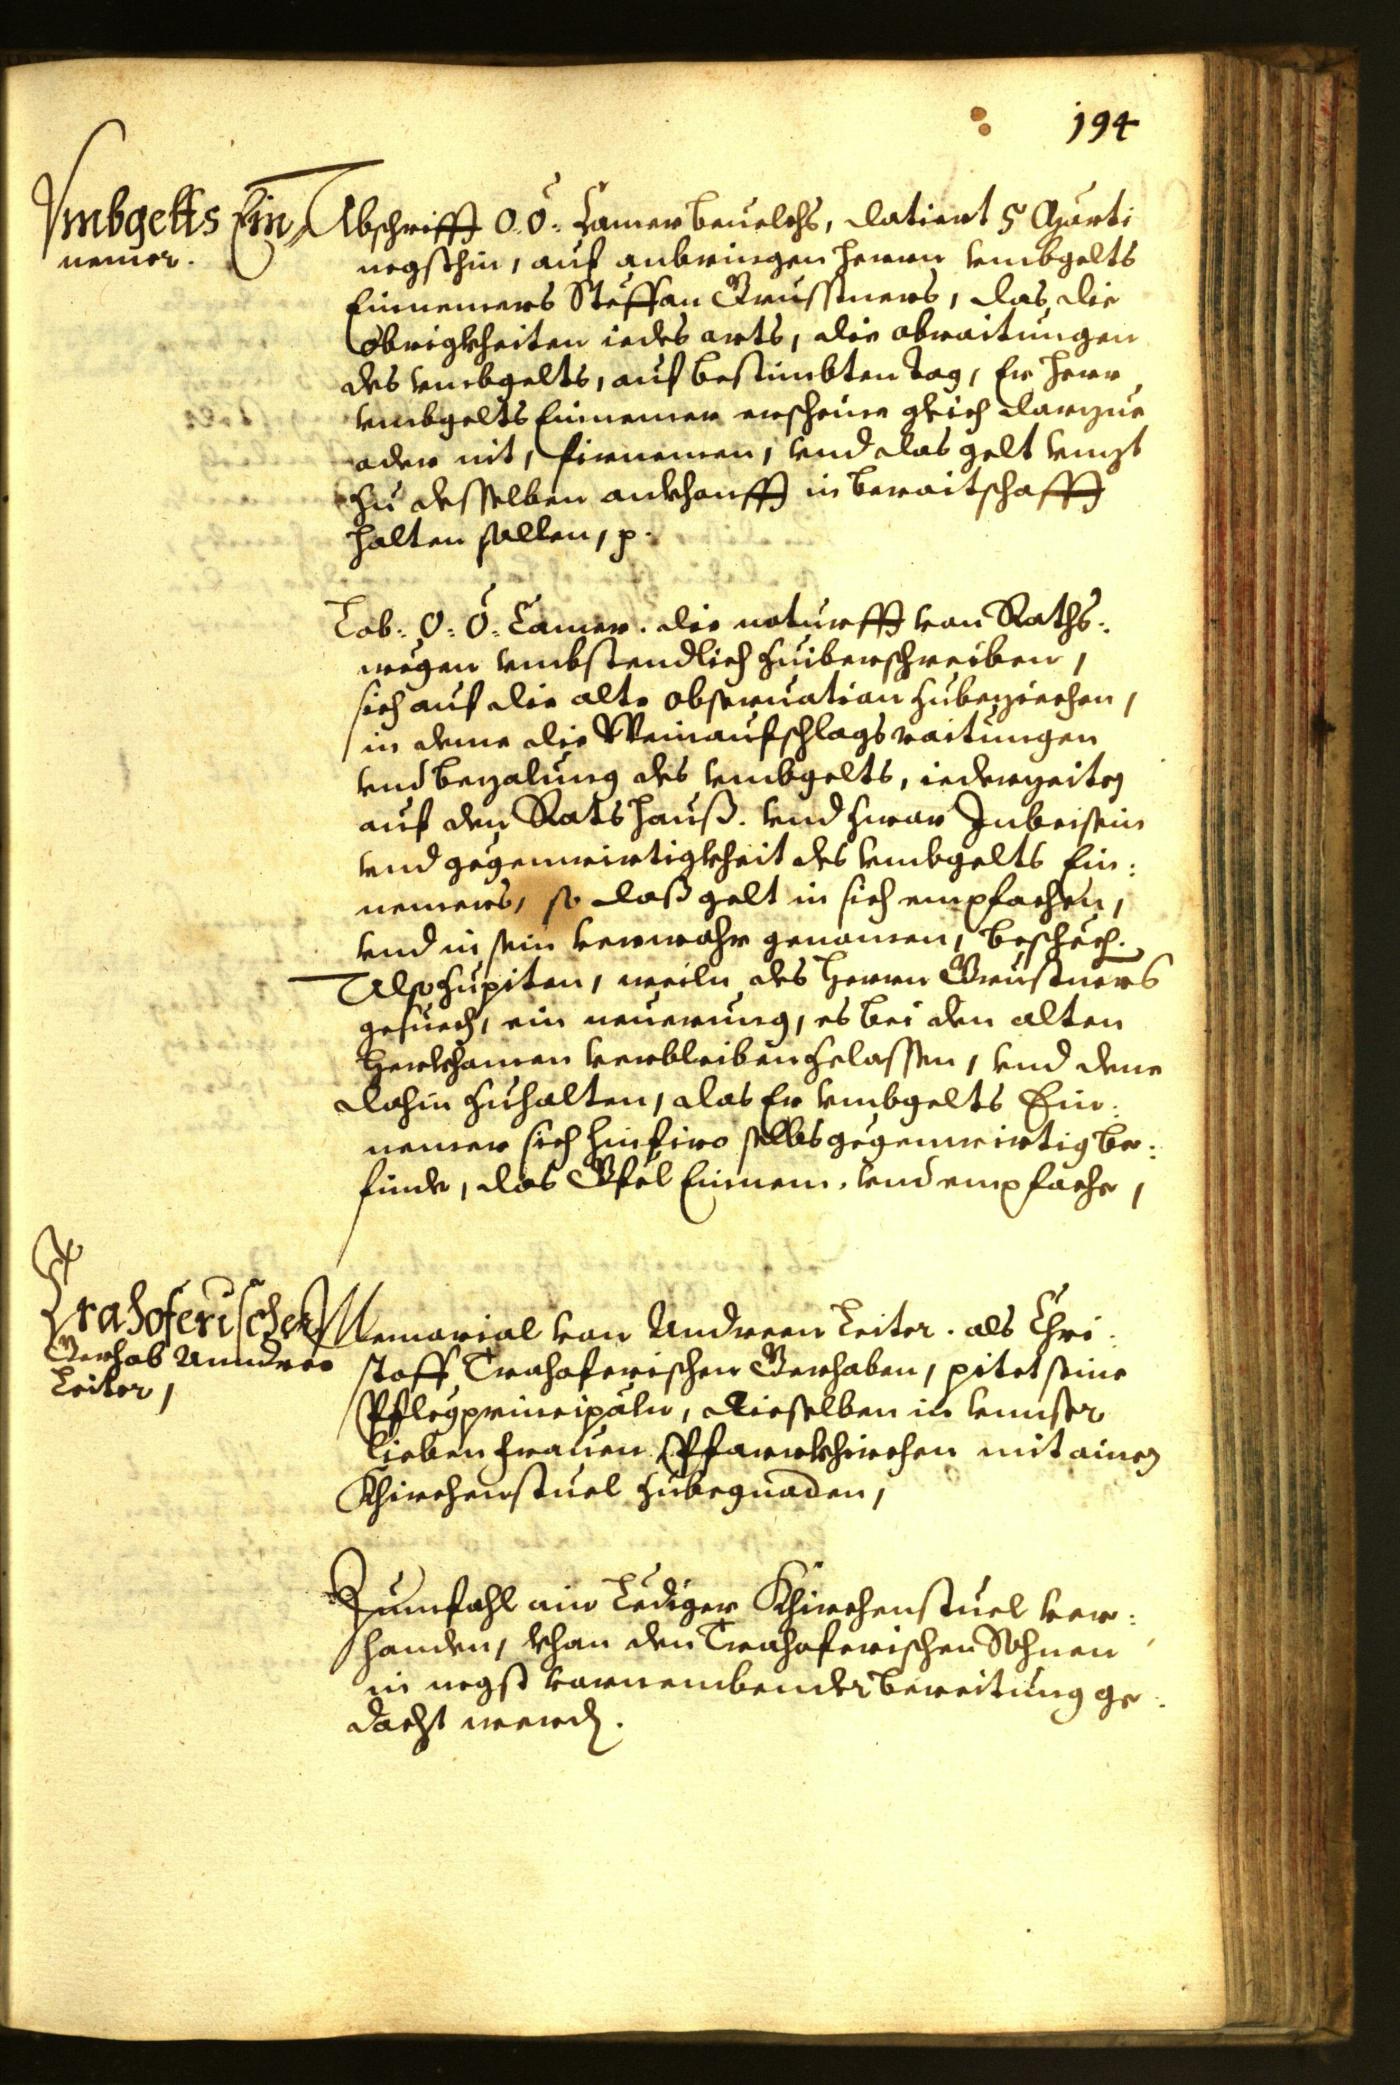 194
Vmbgelts Ein„
nemer.
Abschrifft O: Ö: Camer beuelchs, datiert 5 Marti
negsthin, auf anbringen Herrn vmbgelts
Einnemers Steffan Grusstners, das die
Obrigkheiten iedes orts, die abraitungen
des vmbgelts, auf bestimbten Tag, Er Herr
vmbgelts Einnemer erscheine gleich darzue
oder nit, firnemen, vnd das gelt vnzt
zu desselben ankhonfft in beraitschafft
halten sollen, p.
Lob: O: Ö: Camer. die noturfft von Raths:
wegen vmbstendlich zuiberschreiben,
sich auf die alte obseruation zubeziechen,
in deme die Weinaufschlags raitungen
vnd bezalung des vmbgelts, iederzeiten
auf den Rats hauß. vnd zwar Inbeisein
vnd gegenwirtigkheit des vmbgelts Ein:
nemers, so daß gelt in sich empfachen,
vnd in sein verwahr genomen, beschech.
Also zupiten, weiln des Herrn Grustners
gesuech, ein neuerung, es bei den alten
Herkhomen verbleiben zelassen, vnd dene
dahin zuhalten, das Er vmbgelts Ein:
nemer sich hinfiro selbs gegenwirtig be:
finde, das Gföl Einnem. vnd empfache,
Trahoferischer
Gerhab Anndree
Leiter,
Memorial von Andreen Leiter. als Chri:
stoff Trahoferischen Gerhaben, pitet seine
Pflegprincipaln, dieselben in vnnser
lieben frauen Pfarrkhirchen mit ainen
Khirchenstuel zubegnaden,
Zumfahl ain Lediger Khirchenstuel ver:
handen, khan den Trahoferischen Söhnen
in negst vornembender bereitung ge:
dacht werden.